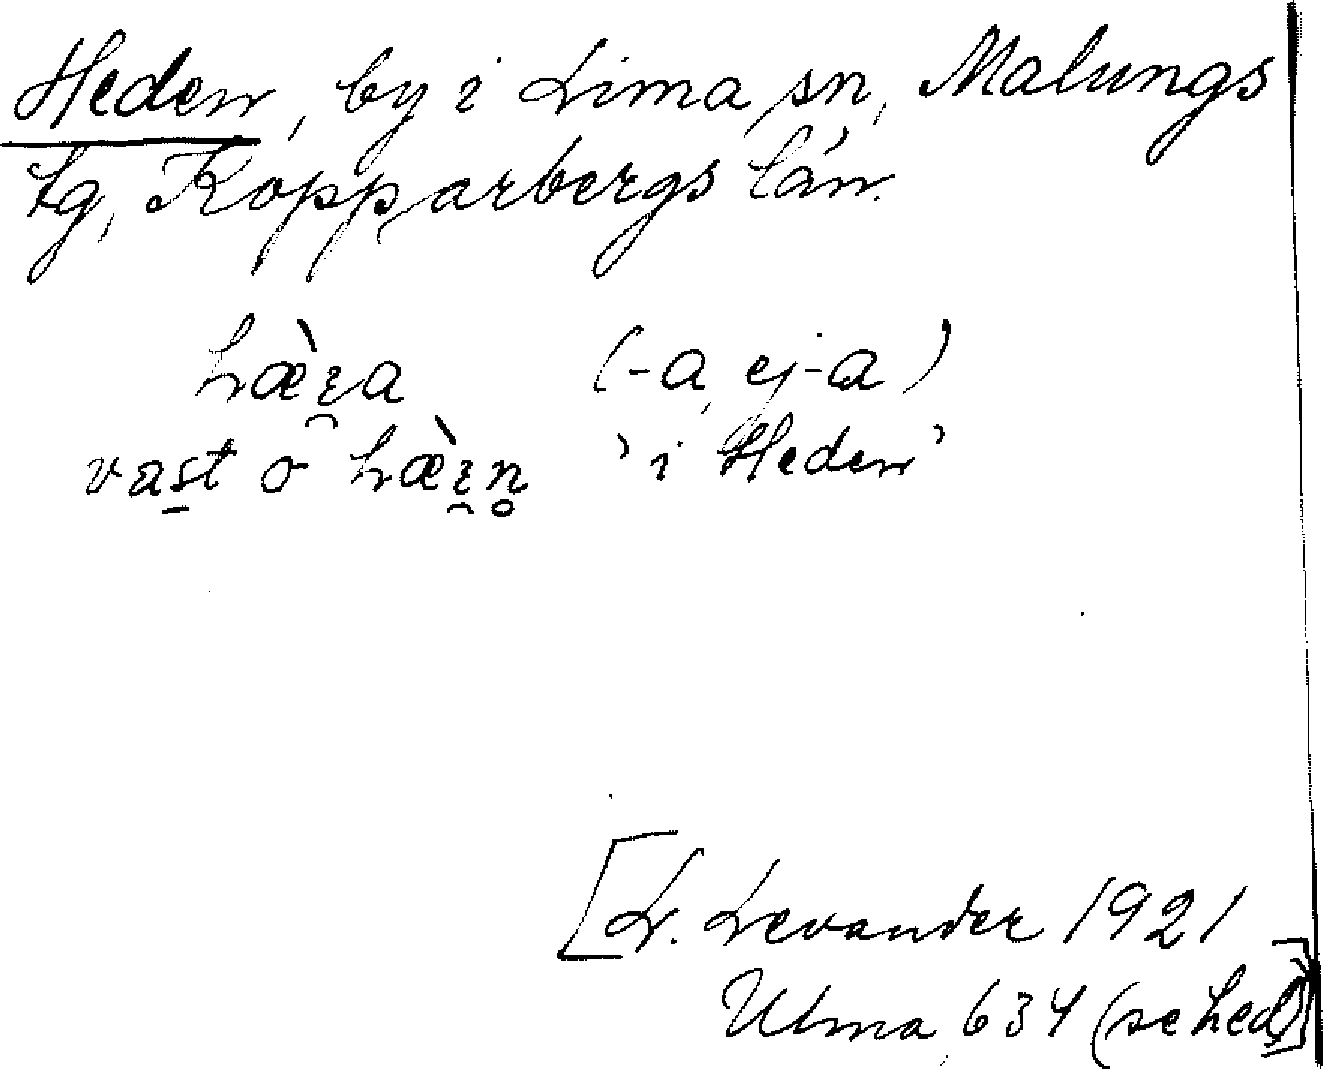 Heden, by i Lima sn, Malungs
tg, Kopparbergs län.
hæ̀ɛ̯a (-a, ej -ɑ)
vast o hæ̀ɛ̯n̥ 'i Heden'
[L. Levander 1921
Ulma 634 (se hed)]